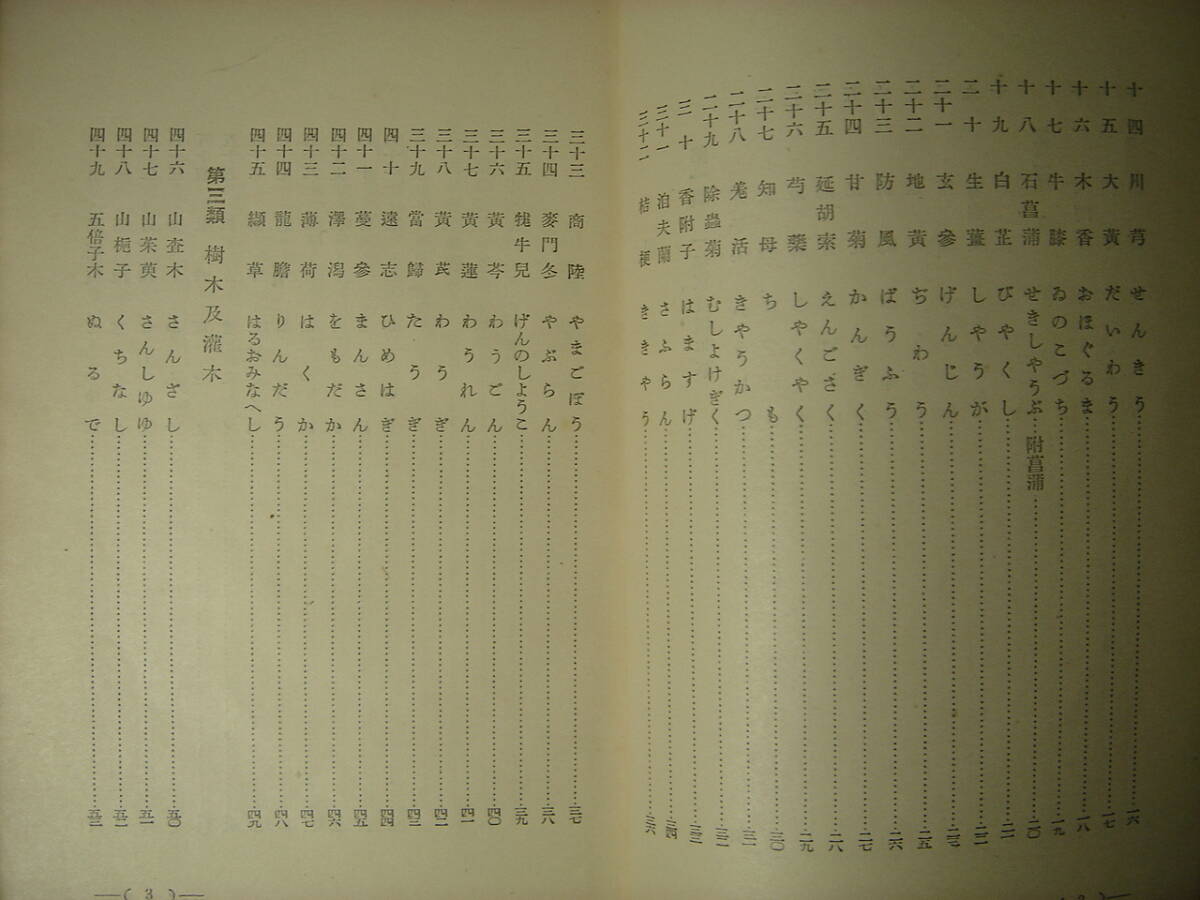 十四 川芎 せんきう……一六
十五 大黃 だいわう……一七
十六 木香 おほぐるま……一八
十七 牛膝 ゐのこづち……一九
十八 石菖蒲 せきしやうぶ……附菖蒲……二〇
十九 白芷 びやくし……二一
二十 生薑 しやうが……二二
二十一 玄參 げんじん……二三
二十二 地黃 ぢわう……二五
二十三 防風 ばうふう……二六
二十四 甘菊 かんぎく……二七
二十五 延胡索 えんごさく……二八
二十六 芍藥 しやくやく……二九
二十七 知母 ちも……三〇
二十八 羌活 きやうかつ……三一
二十九 除蟲菊 むしよけぎく……三二
三十 香附子 はますげ……三三
三十一 泊夫蘭 さふらん……三四
三十二 桔梗 ききやう……三六
三十三 商陸 やまごぼう……三七
三十四 麥門冬 やぶらん……三八
三十五 牻牛兒 げんのしようこ……三九
三十六 黃芩 わうごん……四〇
三十七 黃蓮 わうれん……四一
三十八 黃芪 わうぎ……四二
三十九 當歸 たうぎ……四三
四十 遠志 ひめはぎ……四四
四十一 蔓參 まんさん……四五
四十二 澤瀉 をもだか……四六
四十三 薄荷 はくか……四七
四十四 龍膽 りんだう……四八
四十五 纈草 はるおみなへし……四九
第三類 樹木及灌木
四十六 山査木 さんざし……五〇
四十七 山茱萸 さんしゆゆ……五一
四十八 山梔子 くちなし……五二
四十九 五倍子木 ぬるで……五三
—( 3 )—